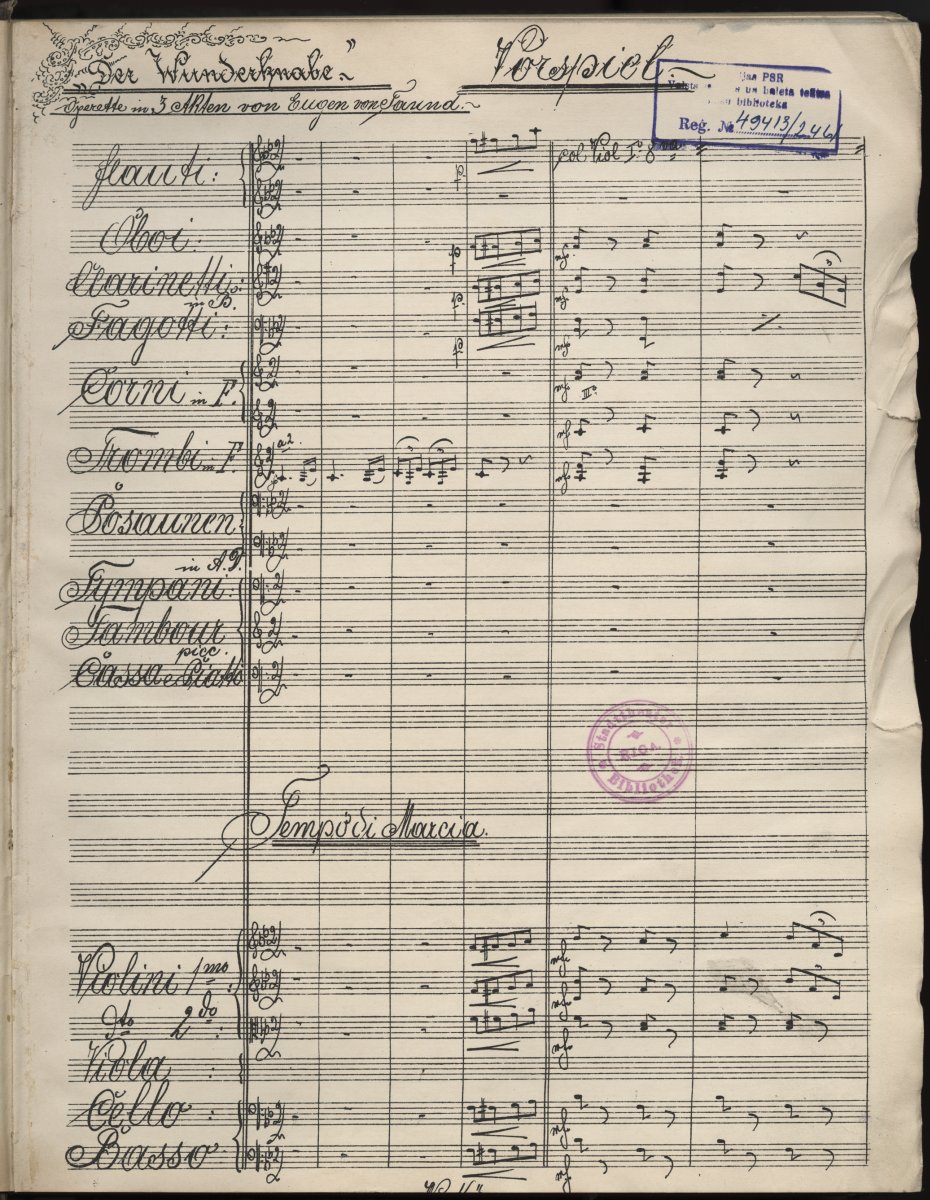 „Der Wunderknabe"
Vorspiel.
Operette in 3 Akten von Eugen von Taund.
PSR
un baleta teātra
bibliotēka
Reg. № 49413/246
flauti:
col Viol Iº 8va
Oboi:
Clarinetti:
in B.
Fagotti:
Corni in F.
IIIº
Trombi in F.
a2.
Posaunen:
in A.D.
Tympani:
Tambour
picc.
Cassa e Piatti
Stadttheater
RIGA.
Bibliothek
Tempo di Marcia.
Violini 1mo
dto 2do:
Viola :
Cello :
Basso